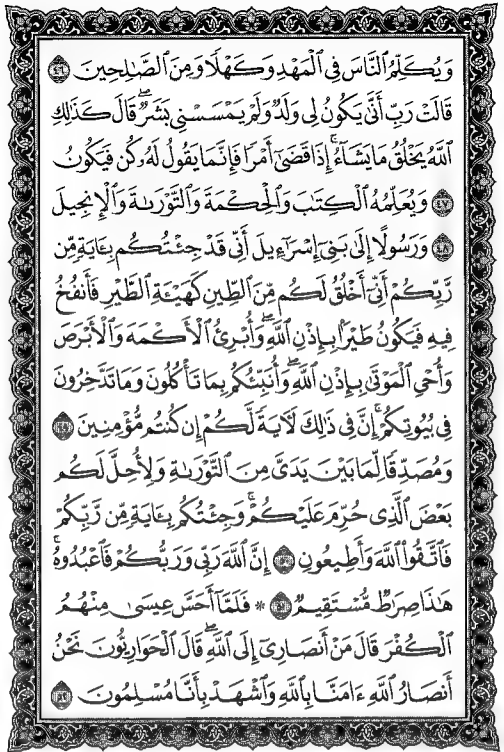 وَيُكَلِّمُ ٱلنَّاسَ فِي ٱلْمَهْدِ وَكَهْلًا وَمِنَ ٱلصَّٰلِحِينَ ٤٦
قَالَتْ رَبِّ أَنَّىٰ يَكُونُ لِي وَلَدٌ وَلَمْ يَمْسَسْنِي بَشَرٌ ۖ قَالَ كَذَٰلِكِ
ٱللَّهُ يَخْلُقُ مَا يَشَآءُ ۚ إِذَا قَضَىٰٓ أَمْرًا فَإِنَّمَا يَقُولُ لَهُۥ كُن فَيَكُونُ
٤٧ وَيُعَلِّمُهُ ٱلْكِتَٰبَ وَٱلْحِكْمَةَ وَٱلتَّوْرَىٰةَ وَٱلْإِنجِيلَ
٤٨ وَرَسُولًا إِلَىٰ بَنِيٓ إِسْرَٰٓءِيلَ أَنِّي قَدْ جِئْتُكُم بِـَٔايَةٍ مِّن
رَّبِّكُمْ أَنِّيٓ أَخْلُقُ لَكُم مِّنَ ٱلطِّينِ كَهَيْـَٔةِ ٱلطَّيْرِ فَأَنفُخُ
فِيهِ فَيَكُونُ طَيْرًۢا بِإِذْنِ ٱللَّهِ ۖ وَأُبْرِئُ ٱلْأَكْمَهَ وَٱلْأَبْرَصَ
وَأُحْيِ ٱلْمَوْتَىٰ بِإِذْنِ ٱللَّهِ ۖ وَأُنَبِّئُكُم بِمَا تَأْكُلُونَ وَمَا تَدَّخِرُونَ
فِي بُيُوتِكُمْ ۚ إِنَّ فِي ذَٰلِكَ لَـَٔايَةً لَّكُمْ إِن كُنتُم مُّؤْمِنِينَ ٤٩
وَمُصَدِّقًا لِّمَا بَيْنَ يَدَيَّ مِنَ ٱلتَّوْرَىٰةِ وَلِأُحِلَّ لَكُم
بَعْضَ ٱلَّذِي حُرِّمَ عَلَيْكُمْ ۚ وَجِئْتُكُم بِـَٔايَةٍ مِّن رَّبِّكُمْ
فَٱتَّقُوا۟ ٱللَّهَ وَأَطِيعُونِ ٥٠ إِنَّ ٱللَّهَ رَبِّي وَرَبُّكُمْ فَٱعْبُدُوهُ ۗ
هَٰذَا صِرَٰطٌ مُّسْتَقِيمٌ ٥١ * فَلَمَّآ أَحَسَّ عِيسَىٰ مِنْهُمُ
ٱلْكُفْرَ قَالَ مَنْ أَنصَارِيٓ إِلَى ٱللَّهِ ۖ قَالَ ٱلْحَوَارِيُّونَ نَحْنُ
أَنصَارُ ٱللَّهِ ءَامَنَّا بِٱللَّهِ وَٱشْهَدْ بِأَنَّا مُسْلِمُونَ ٥٢